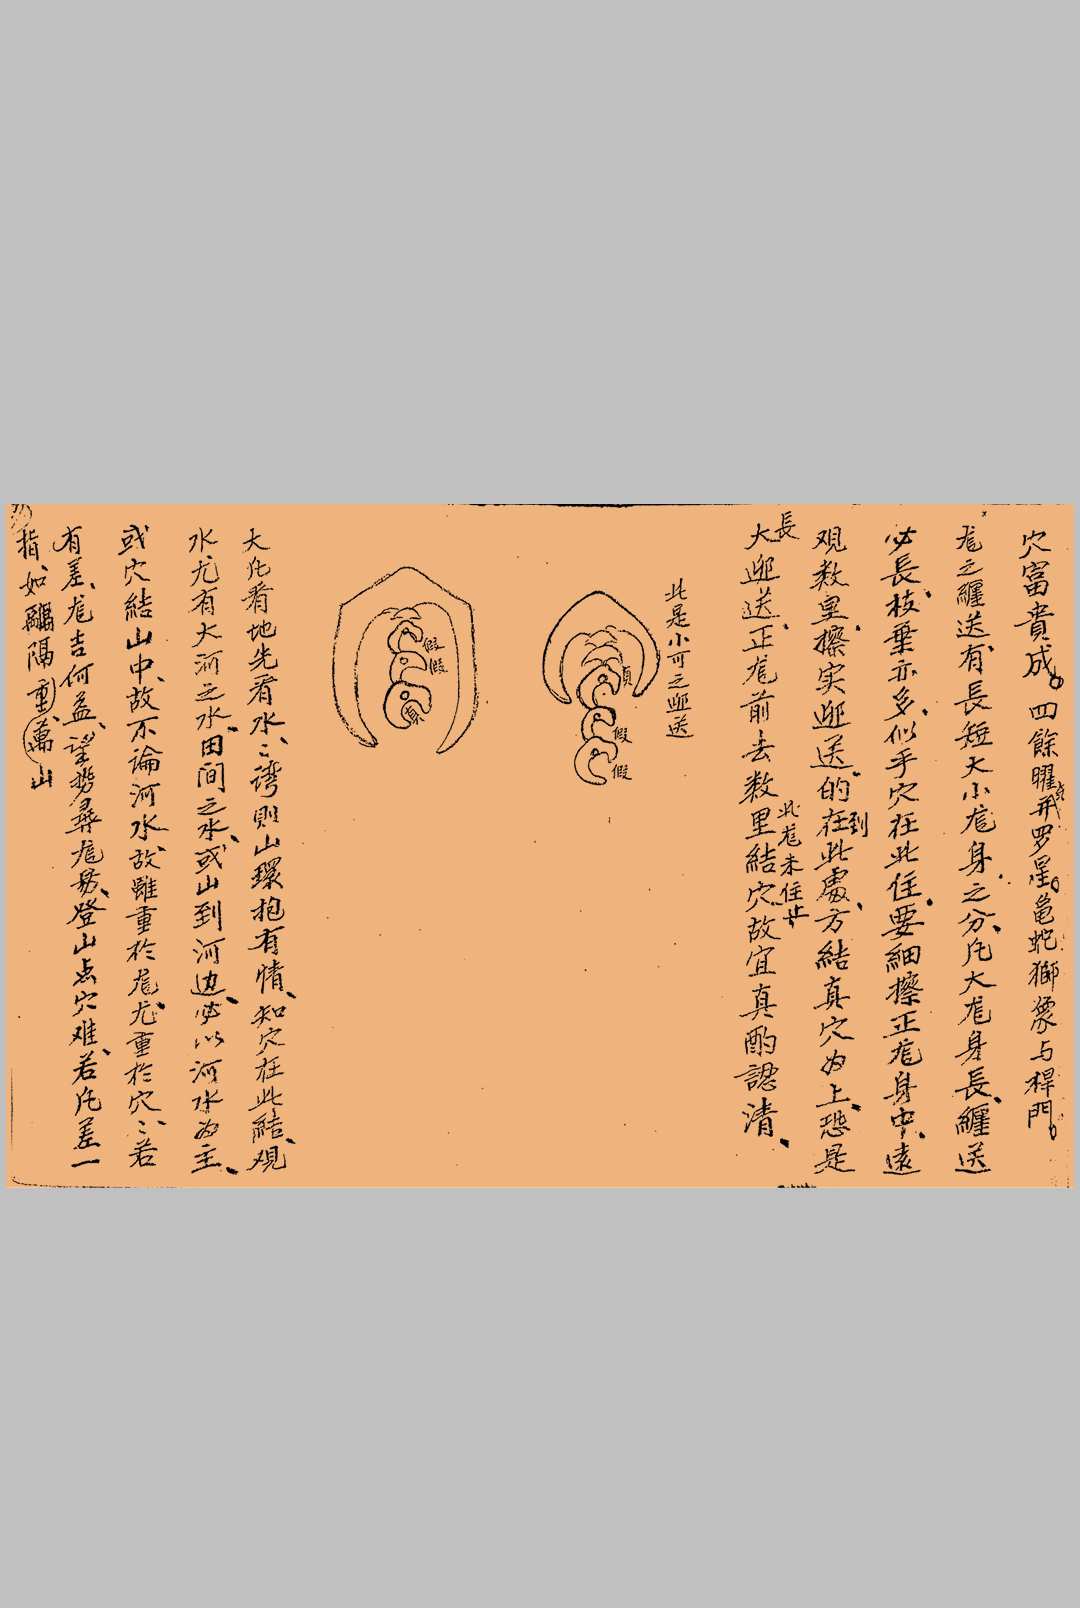 穴富貴成。四餘曜升罗星。亀蛇獅象与桿門。
龙之纏送、有長短大小龙身之分、凡大龙身長、纏送
必長、枝葉亦多、似乎穴在此住、要細擦正龙身中、遠
观数里、擦实迎送的在到此處、方結真穴为上、恐是
長大迎送、正龙前去数里結穴、故宜真酌認清、
此龙未住步
此是小可之迎送
真
假
假
假
假
真
大凡看地先看水、水湾則山環抱有情、知穴在此結、观
水尤有大河之水、田间之水、或山到河边、必以河水为主、
或穴結山中、故不論河水、故雖重於龙、尤重於穴、穴若
有差、龙吉何益、望势尋龙易、登山点穴难、若凡差一
指、如隔重萬山